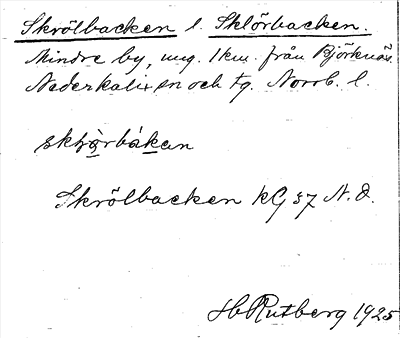 Skrölbacken l. Sklörbacken.
Mindre by, ung. 1 km. från Björknäs.
Nederkalix sn och tg. Norrb. l.
Skrölbacken KG 37 N. O.
Hb Rutberg 1925